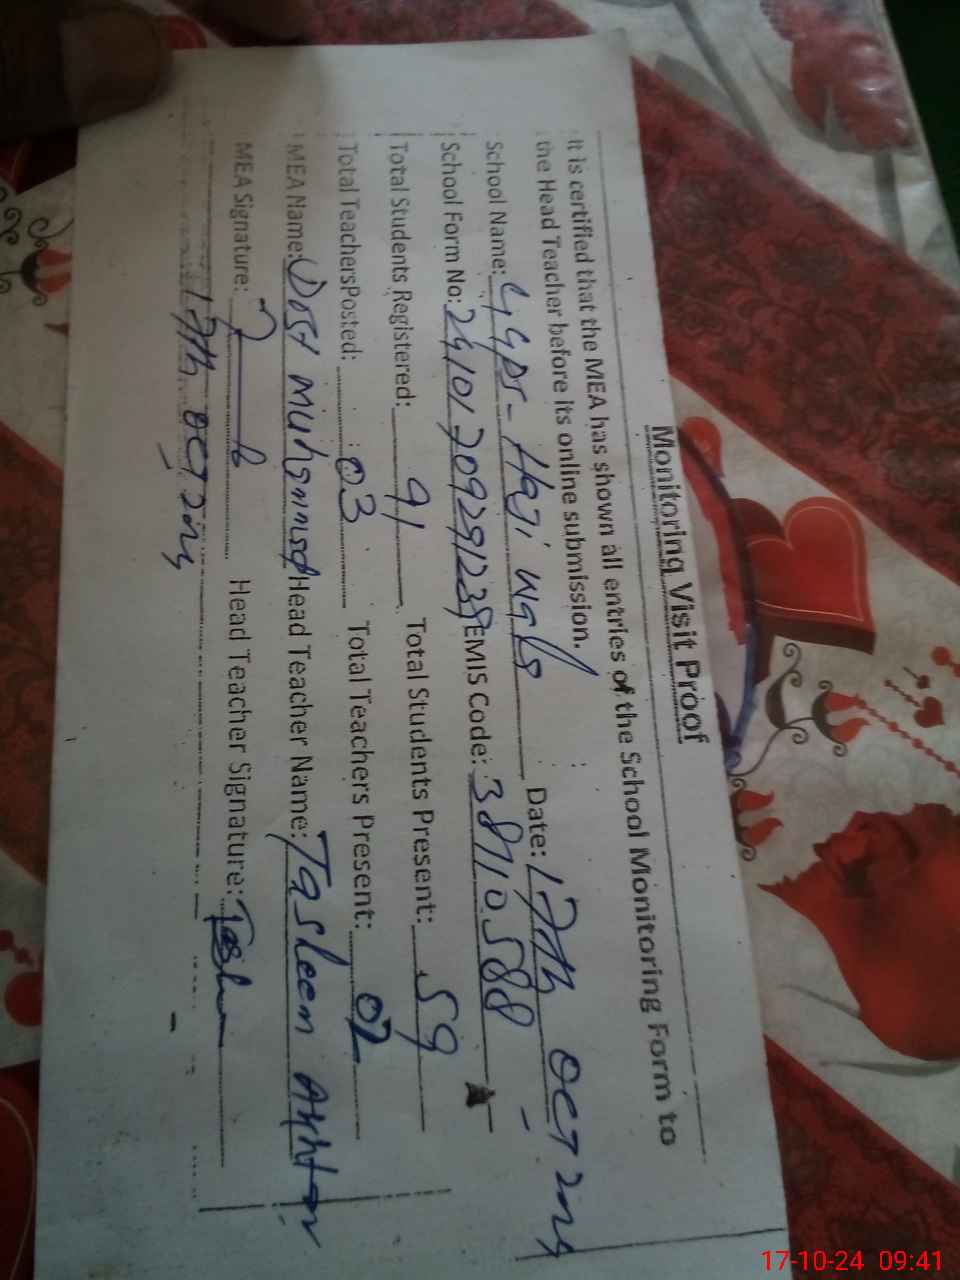 Monitoring Visit Proof
It is certified that the MEA has shown all entries of the School Monitoring Form to
the Head Teacher before its online submission.
School Name: GGPS- Haji Date: 17th OCT 2024
School Form No: EMIS Code: 38710588
Total Students Registered: 91 Total Students Present: 59
Total TeachersPosted: 03 Total Teachers Present: 02
MEA Name: Dost Muhammad Head Teacher Name: Tasleem Akhtar
MEA Signature: Head Teacher Signature:
17th OCT 2024
17-10-24 09:41